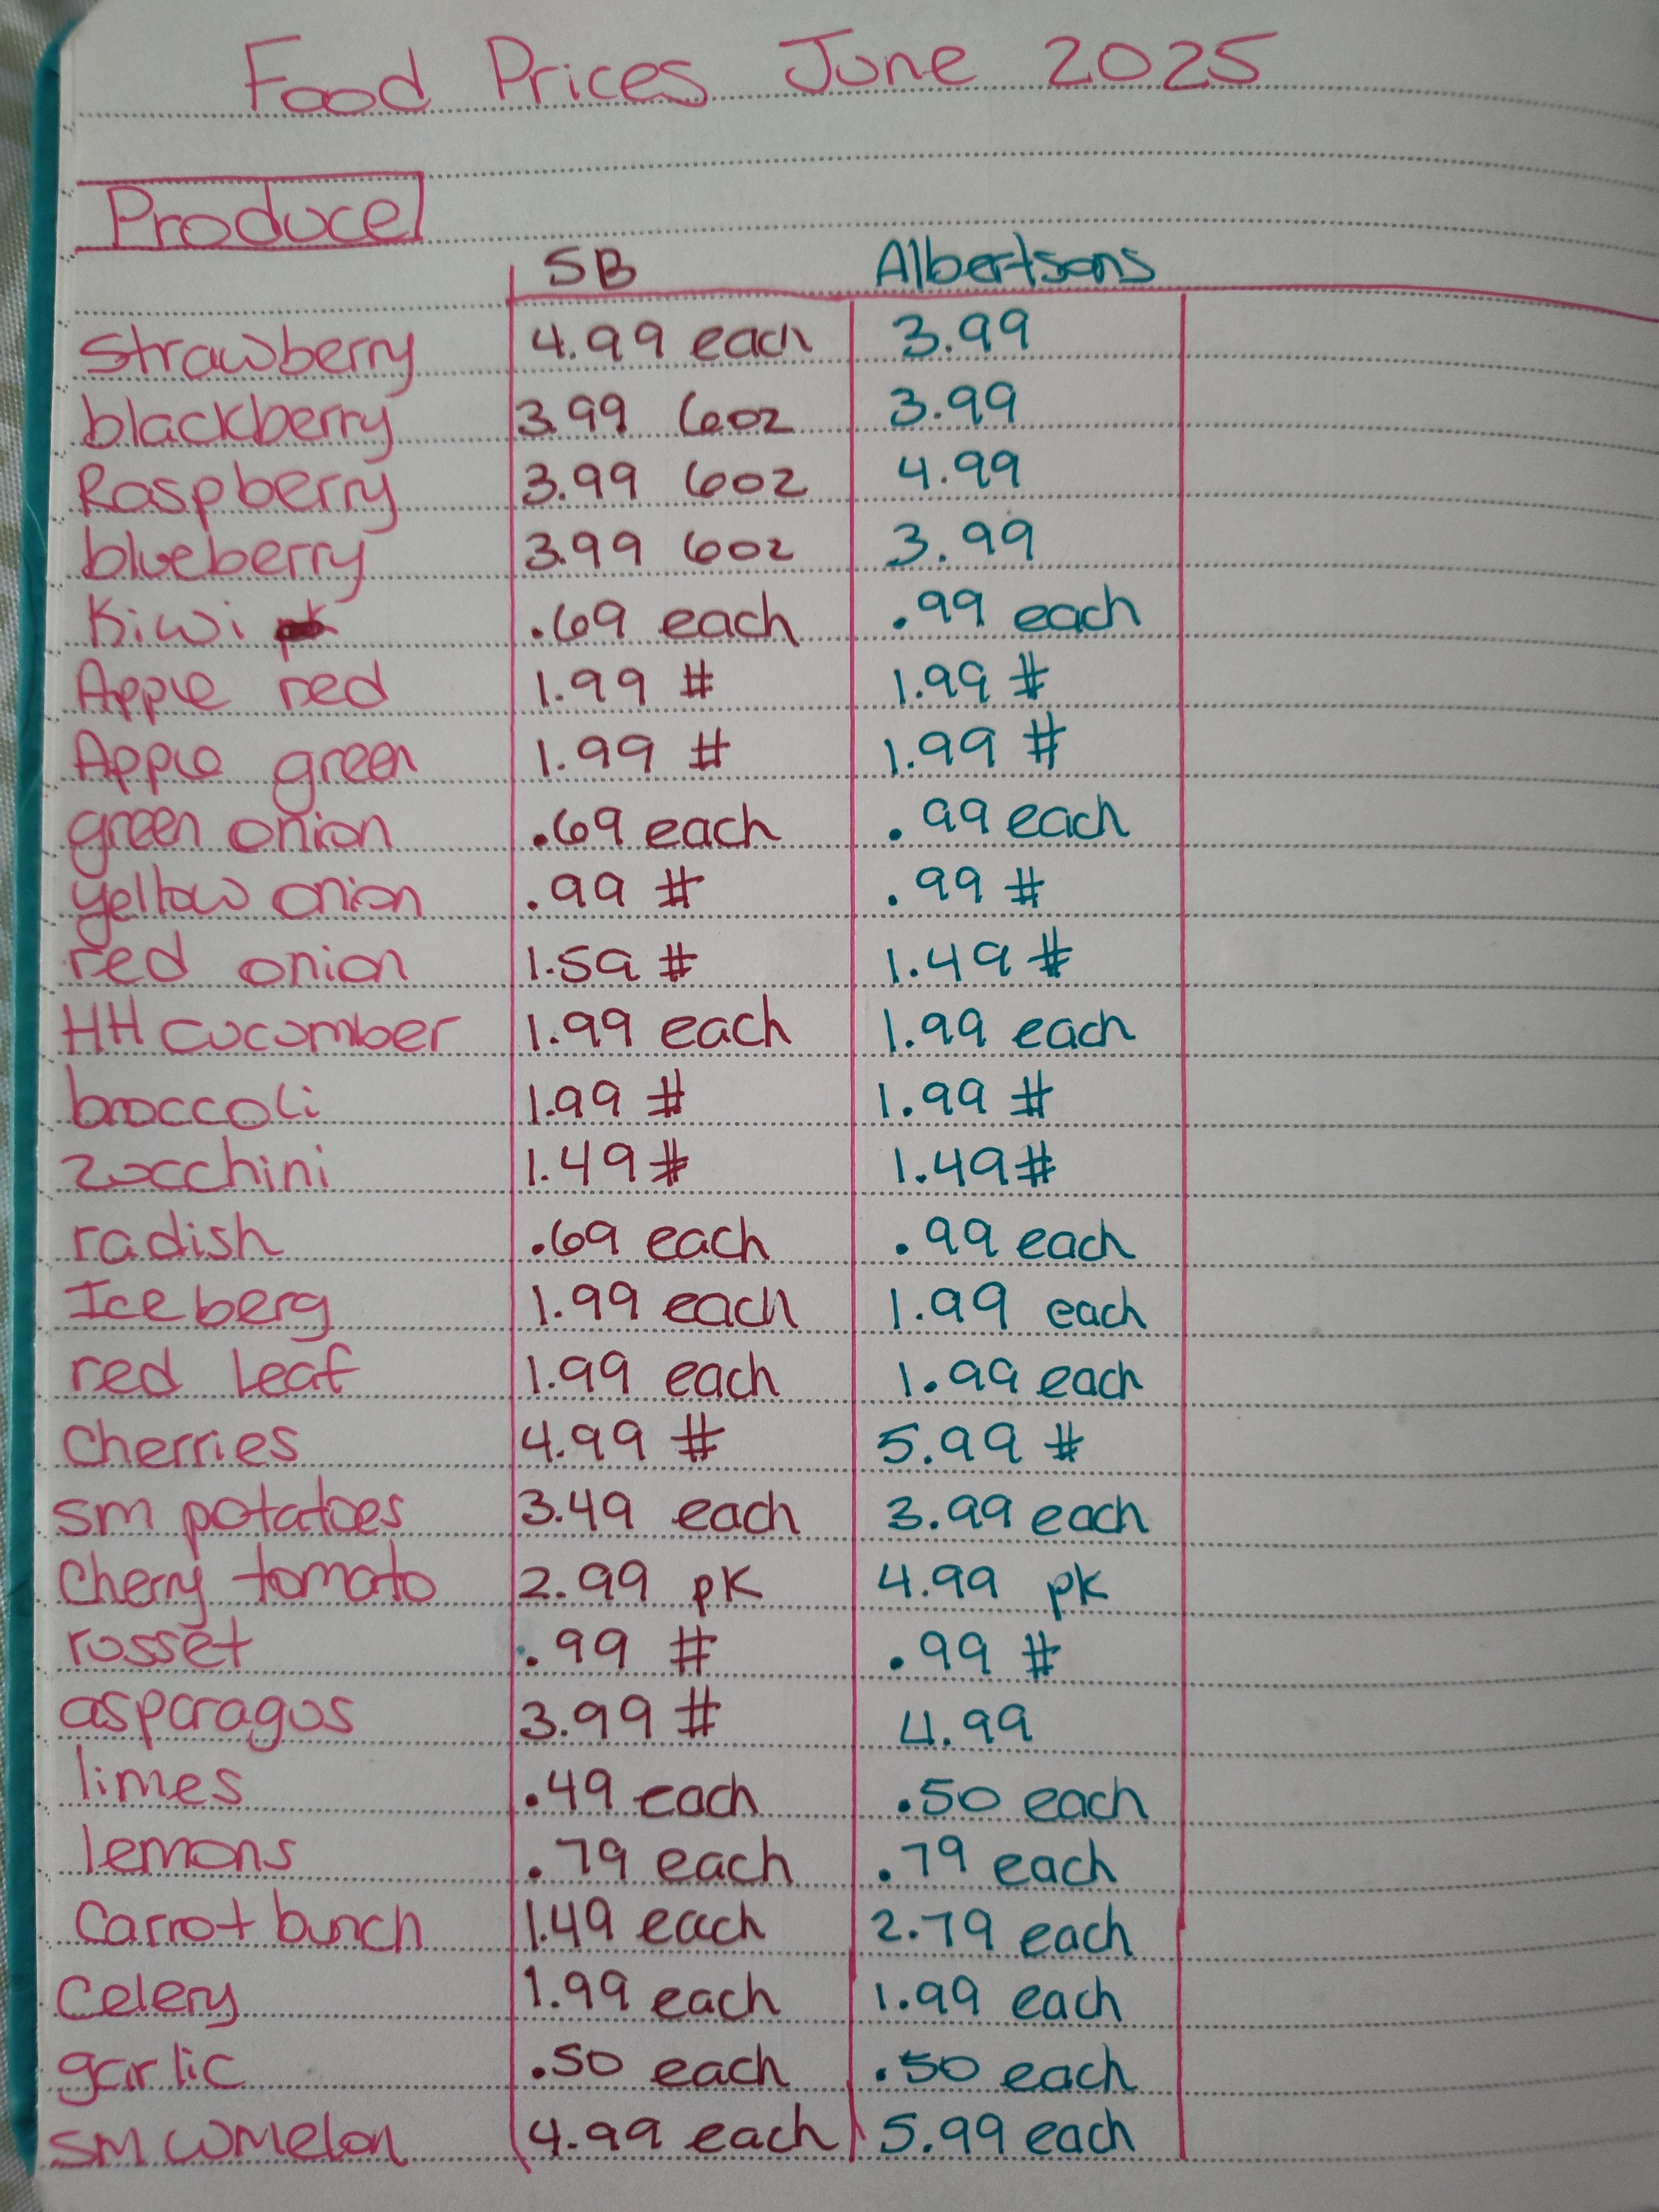 Food Prices June 2025
Produce
SB Albertsons
Strawberry 4.99 each 3.99
blackberry 3.99 6oz 3.99
Raspberry 3.99 6oz 4.99
blueberry 3.99 6oz 3.99
Kiwi .69 each .99 each
Apple red 1.99 # 1.99 #
Apple green 1.99 # 1.99 #
green onion .69 each .99 each
yellow onion .99 # .99 #
red onion 1.59 # 1.49 #
HH cucumber 1.99 each 1.99 each
broccoli 1.99 # 1.99 #
zucchini 1.49 # 1.49 #
radish .69 each .99 each
Iceberg 1.99 each 1.99 each
red leaf 1.99 each 1.99 each
Cherries 4.99 # 5.99 #
sm potatoes 3.49 each 3.99 each
Cherry tomato 2.99 pk 4.99 pk
russet .99 # .99 #
asparagus 3.99 # 4.99
limes .49 each .50 each
lemons .79 each .79 each
Carrot bunch 1.49 each 2.79 each
Celery 1.99 each 1.99 each
garlic .50 each .50 each
SM WMelon 4.99 each 5.99 each